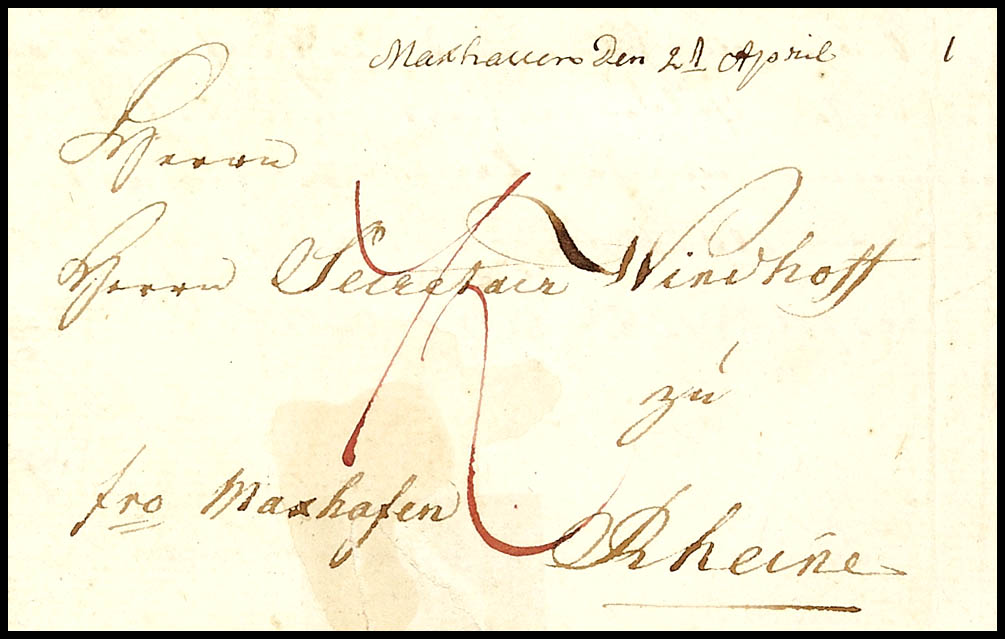 Maxhauen den 21 April 1
Herrn
Herrn Secretair Windhoff
zu
fro Maxhafen
Rheine